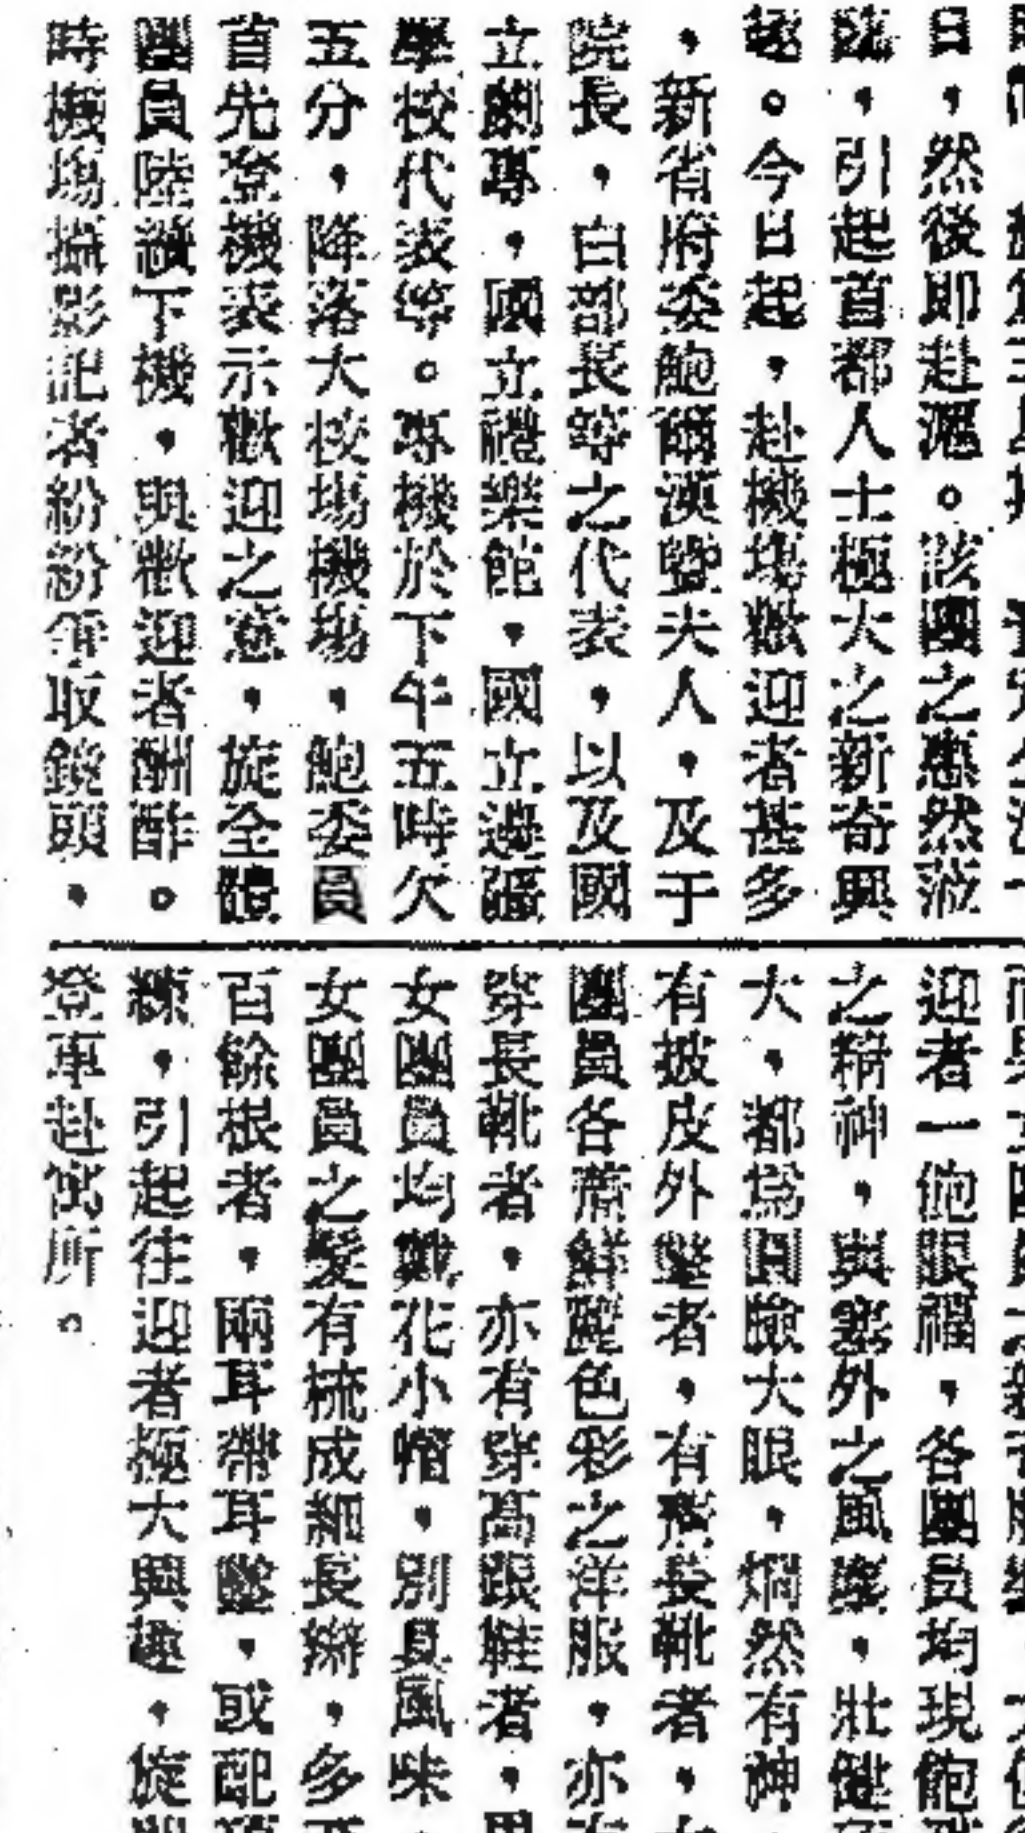 日,然後即赴滬。該團之惠然蒞
臨,引起首都人士極大之新奇興
趣。今日起,赴機場歡迎者甚多
,新省府委鮑爾漢暨夫人,及于
院長,白部長等之代表,以及國
立劇專,國立禮樂館,國立邊疆
學校代表等。專機於下午五時欠
五分,降落大校場機場,鮑委員
首先登機表示歡迎之意,旋全體
團員陸續下機,與歡迎者酬酢。
時機場攝影記者紛紛爭取鏡頭,
迎者一飽眼福,各團員均現飽
之精神,與塞外之風,壯健
大,都為圓臉大眼,烱然有神
有披皮外氅者,有長靴者,
團員各着鮮麗色彩之洋服,亦
穿長靴者,亦有穿高跟鞋者,
女團員均戴花小帽,別具風味
女團員之髮有梳成細長辮,多
百餘根者,兩耳帶耳墜,或配
練,引起往迎者極大興趣,旋
登車赴寓所。